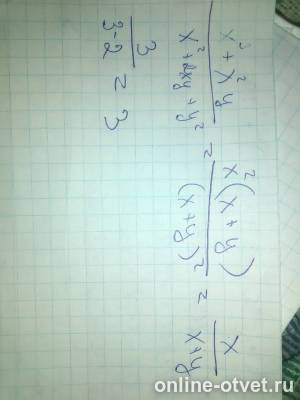 x³ + x²y / x² + 2xy + y² = x²(x + y) / (x + y)² = x / x+y
3 / 3-2 = 3
online-otvet.ru